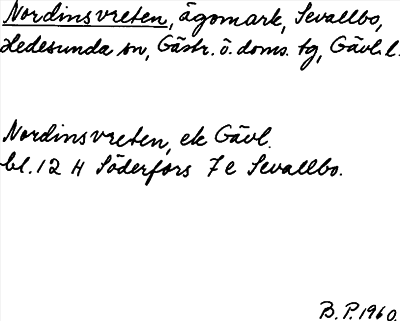 Nordinsvreten, ägomark, Sevallbo,
Hedesunda sn, Gästr. ö. doms. tg, Gävl. l.
Nordinsvreten, ek Gävl.
bl. 12 H Söderfors 7 e Sevallbo.
B. P. 1960.